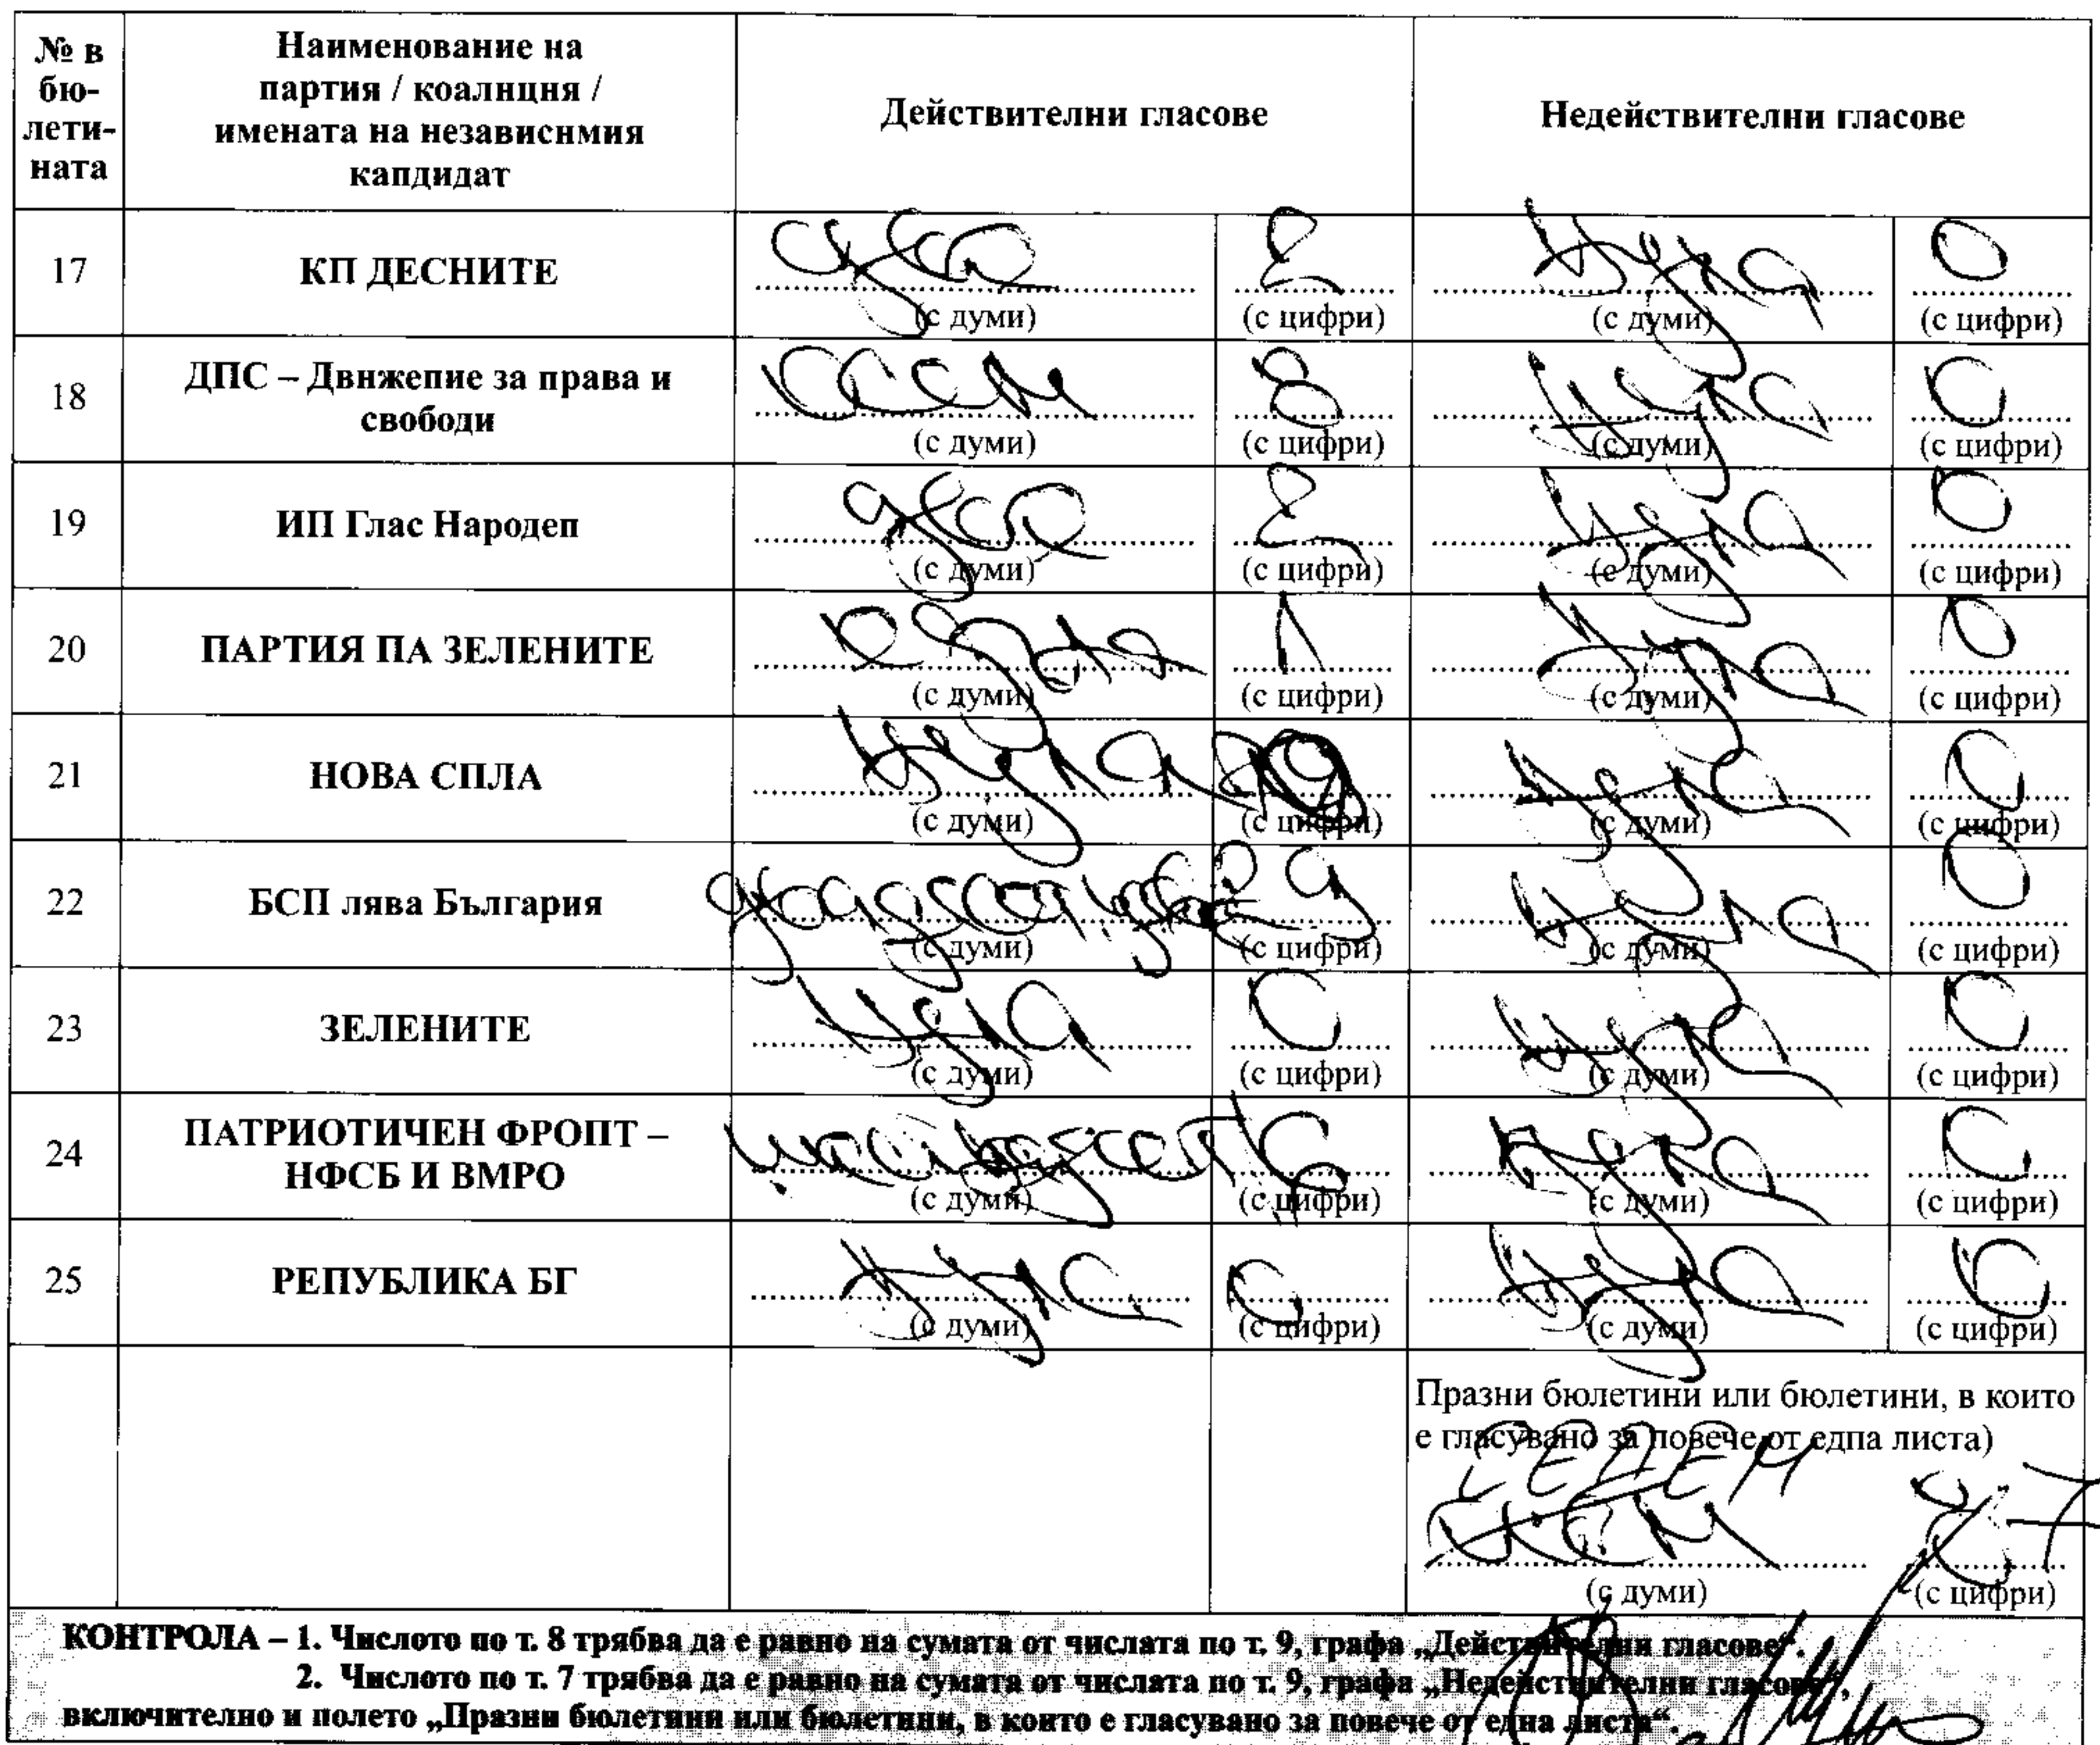 № в
бю-
лети-
ната
Наименование на
партия / коалнцня /
имената на независнмия
капдидат
Действителни гласове
Недействителни гласове
17 КП ДЕСНИТЕ два 2 нула 0
(с думи) (с цифри) (с думи) (с цифри)
18 ДПС – Двнжепие за права и
свободи
осем 8 нула 0
(с думи) (с цифри) (с думи) (с цифри)
19 ИП Глас Народеп два 2 нула 0
(с думи) (с цифри) (с думи) (с цифри)
20 ПАРТИЯ ПА ЗЕЛЕНИТЕ 1 нула 0
(с думи) (с цифри) (с думи) (с цифри)
21 НОВА СПЛА нула нула 0
(с думи) (с цифри) (с думи) (с цифри)
22 БСП лява България 29 нула 0
(с думи) (с цифри) (с думи) (с цифри)
23 ЗЕЛЕНИТЕ нула 0 нула 0
(с думи) (с цифри) (с думи) (с цифри)
24 ПАТРИОТИЧЕН ФРОПТ –
НФСБ И ВМРО
нула 0
(с думи) (с цифри) (с думи) (с цифри)
25 РЕПУБЛИКА БГ нула 0 нула 0
(с думи) (с цифри) (с думи) (с цифри)
Празни бюлетини или бюлетини, в които
е гласувано за повече от едпа листа)
седем 7
(с думи) (с цифри)
КОНТРОЛА – 1. Числото по т. 8 трябва да е равно на сумата от числата по т. 9, графа „Действителни гласове“.
2. Числото по т. 7 трябва да е равно на сумата от числата по т. 9, графа „Недействителни гласове“,
включително и полето „Празни бюлетини или бюлетини, в които е гласувано за повече от една листа“.